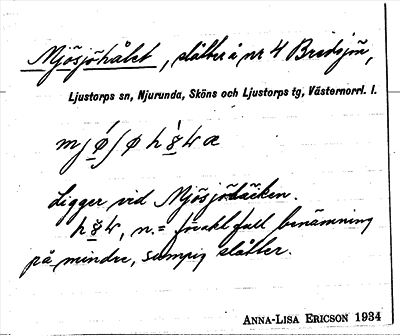 Mjösjöhålet, slåtter å nr 4 Bredsjön,
Ljustorps sn, Njurunda, Sköns och Ljustorps tg, Västernorrl. l.
Ligger vid Mjösjöbäcken.
n. = föråldrad benämning
på mindre, sumpig slåtter.
ANNA-LISA ERICSON 1934